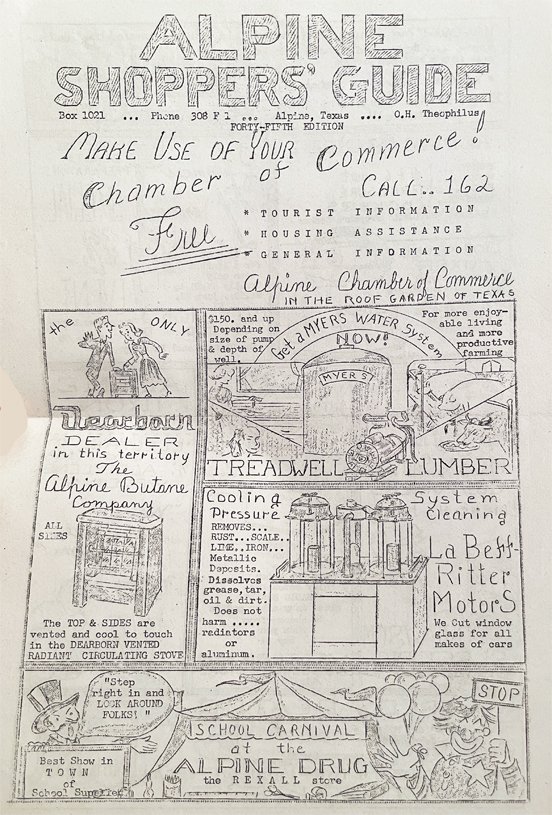 ALPINE
SHOPPERS' GUIDE
Box 1021 ... Phone 308 F 1 ... Alpine, Texas .... O.H. Theophilus
FORTY-FIFTH EDITION
MAKE USE OF YOUR
Chamber of Commerce!
CALL.. 162
Free
* TOURIST INFORMATION
* HOUSING ASSISTANCE
* GENERAL INFORMATION
Alpine Chamber of Commerce
IN THE ROOF GARDEN OF TEXAS
the ONLY
Dearborn
DEALER
in this territory
The
Alpine Butane
Company
ALL
SIZES
The TOP & SIDES are
vented and cool to touch
in the DEARBORN VENTED
RADIANT CIRCULATING STOVE
$150. and up
Depending on
size of pump
& depth of
well.
Get a MYERS WATER System
NOW!
MYERS
For more enjoy-
able living
and more
productive
farming
TREADWELL LUMBER
Cooling System
Pressure Cleaning
REMOVES...
RUST...SCALE..
LIME..IRON...
Metallic
Deposits.
Dissolves
grease,tar,
oil & dirt.
Does not
harm .....
radiators
or
aluminum.
La Beff-
Ritter
MotorS
We Cut window
glass for all
makes of cars
"Step
right in and
LOOK AROUND
FOLKS! "
Best Show in
TOWN
of
School Supplies
SCHOOL CARNIVAL
at the
ALPINE DRUG
the REXALL store
STOP